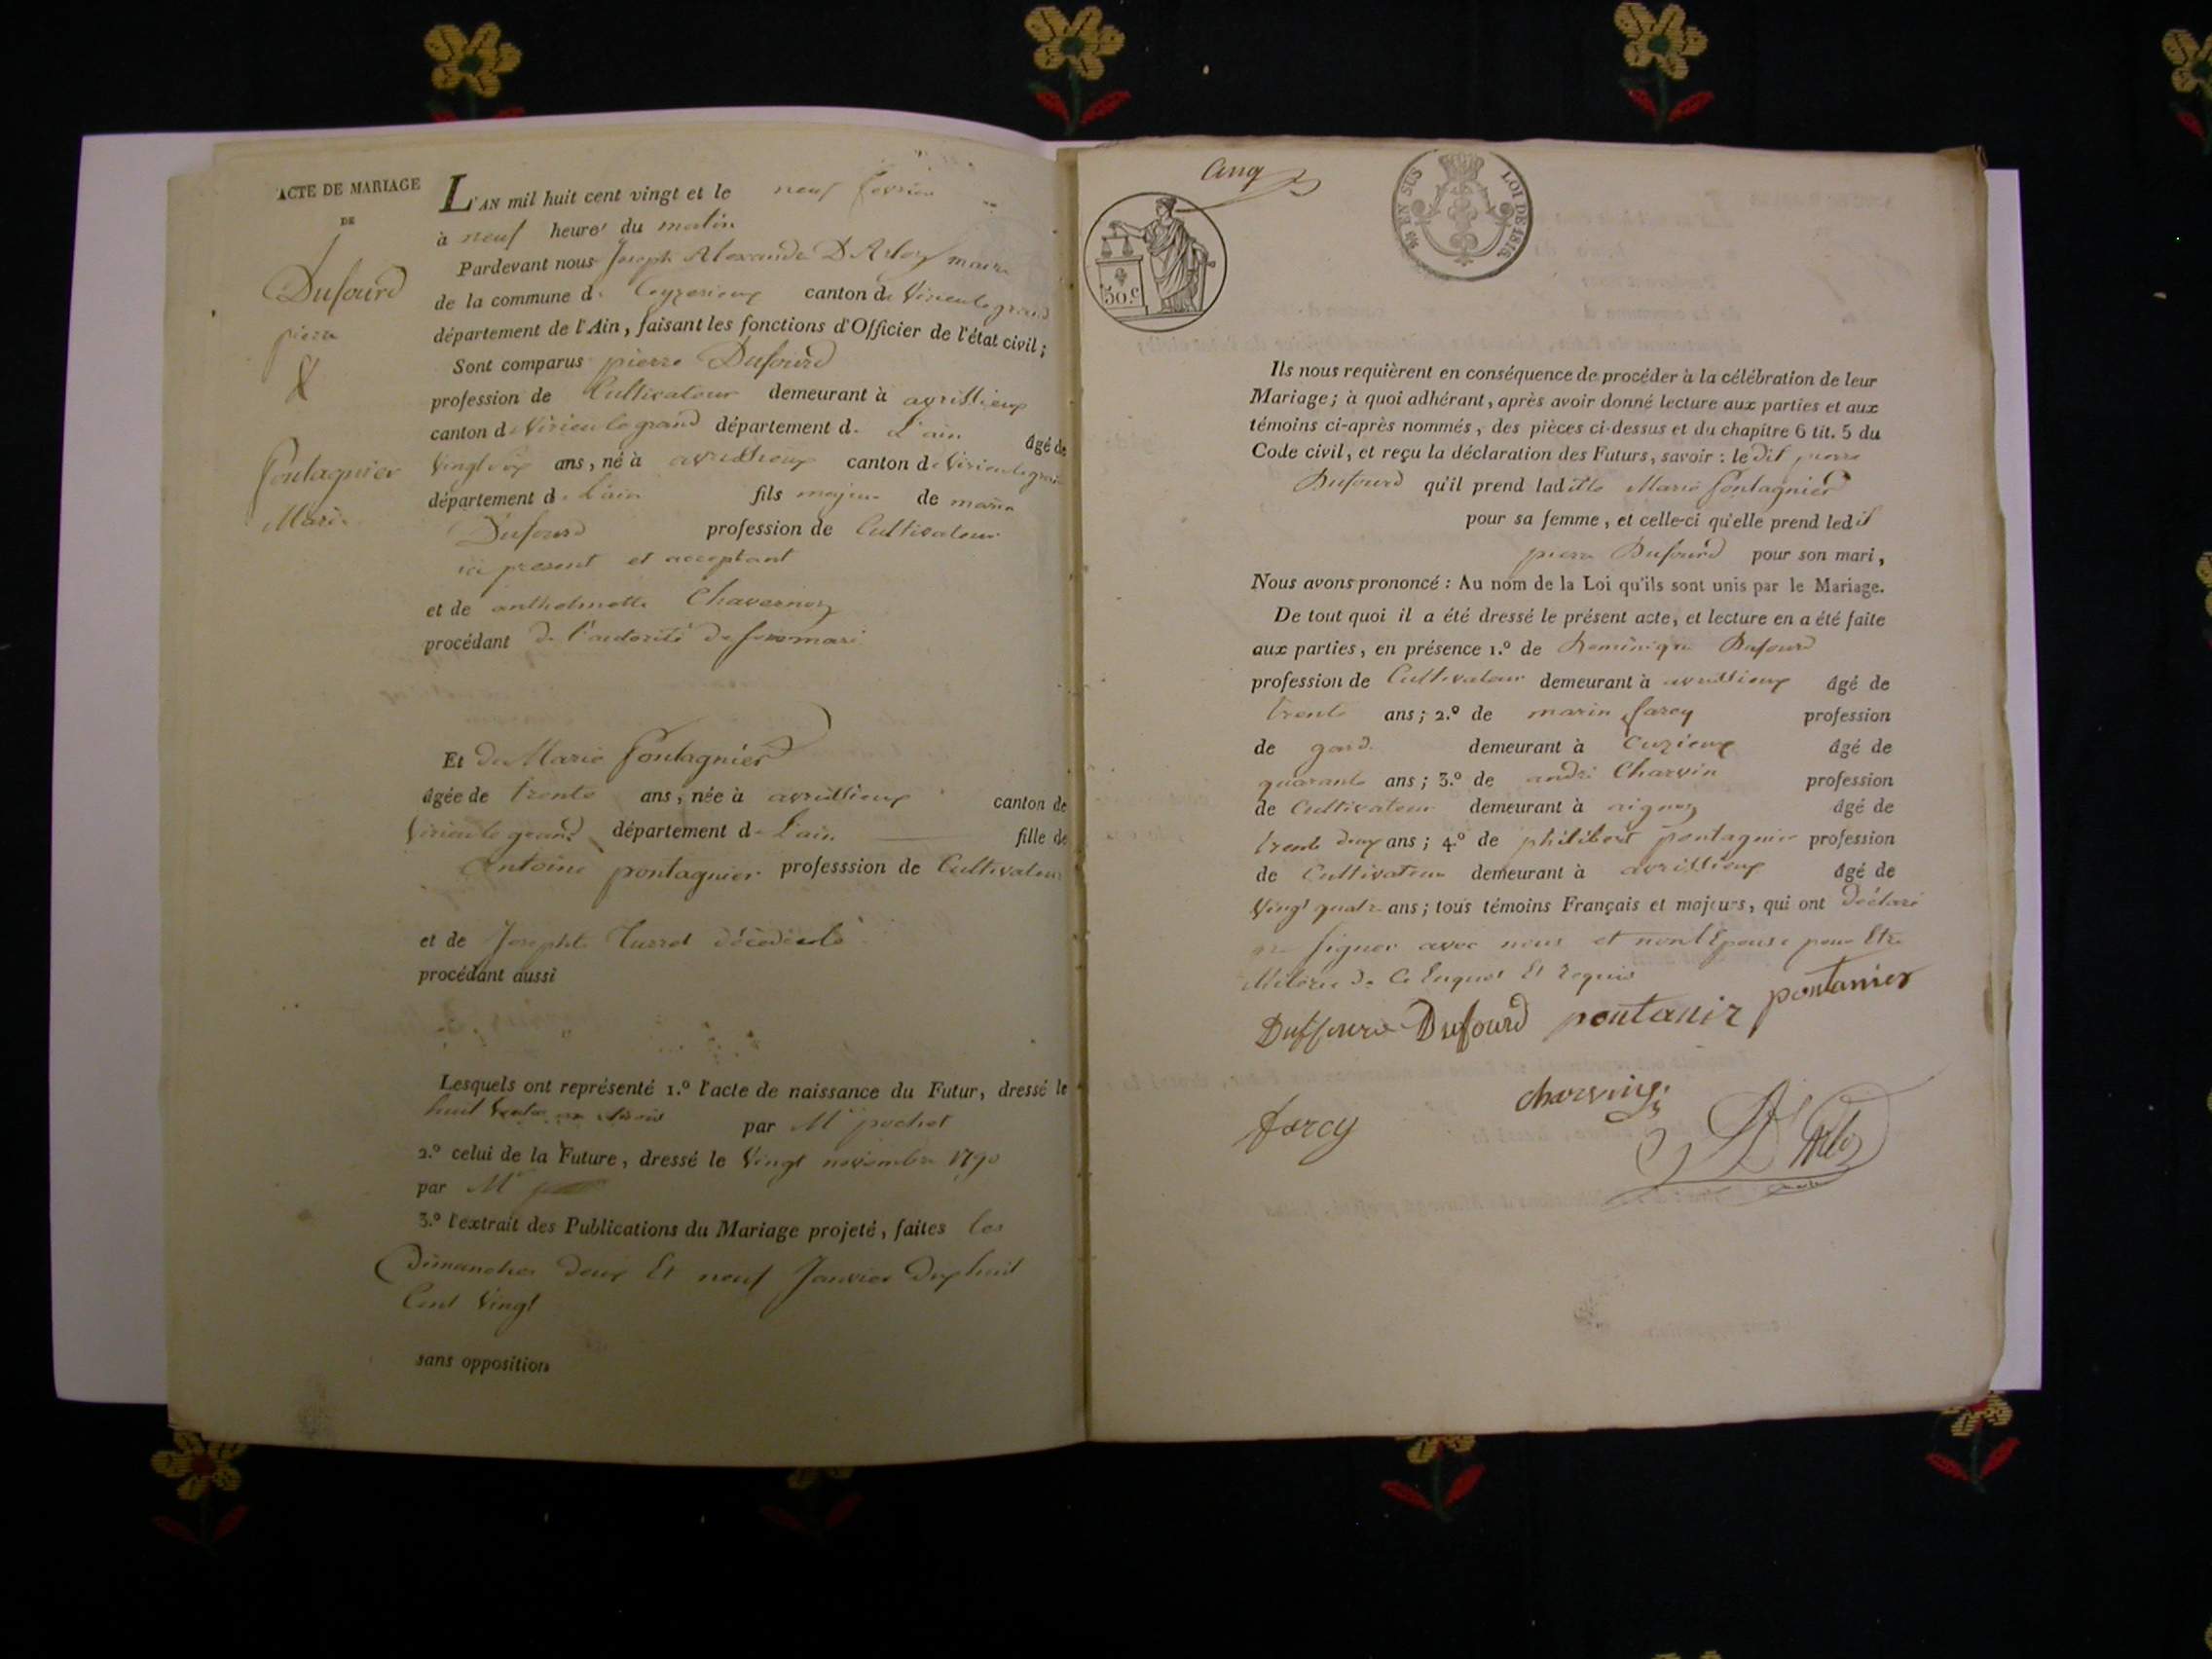 ACTE DE MARIAGE
DE
Dufourd
pierre
&
Pontagnier
Marie
L'AN mil huit cent vingt et le neuf fevrier
à neuf heures du matin
Pardevant nous Joseph Alexandre D'Arloz maire
de la commune de Ceyzerieux canton de Virieu le grand
département de l'Ain, faisant les fonctions d'Officier de l'état civil;
Sont comparus pierre Dufourd
profession de Cultivateur demeurant à avrissieux
canton de Virieu le grand département de L'ain âgé de
Vingt six ans, né à avrissieux canton de Virieu le grand
département de L'ain fils majeur de marin
Dufourd profession de Cultivateur
ici present et acceptant
et de anthelmette Chavernoz
procédant de l'autorité de son mari
Et de Marie Pontagnier
âgée de trente ans, née à avrissieux canton de
Virieu le grand département de L'ain fille de
Antoine pontagnier professsion de Cultivateur
et de Josephte Turrel décédée
procédant aussi
Lesquels ont représenté 1.º l'acte de naissance du Futur, dressé le
huit par Mr pochet
2.º celui de la Future, dressé le Vingt novembre 1790
par Mr
3.º l'extrait des Publications du Mariage projeté, faites les
Dimanches deux Et neuf Janvier dix huit
Cent Vingt
sans opposition
Cinq
50 C
EN SUS
LOI DE 1816
Ils nous requièrent en conséquence de procéder à la célébration de leur
Mariage; à quoi adhérant, après avoir donné lecture aux parties et aux
témoins ci-après nommés, des pièces ci-dessus et du chapitre 6 tit. 5 du
Code civil, et reçu la déclaration des Futurs, savoir: le dit pierre
Dufourd qu'il prend ladite Marie Pontagnier
pour sa femme, et celle-ci qu'elle prend ledit
pierre Dufourd pour son mari,
Nous avons prononcé: Au nom de la Loi qu'ils sont unis par le Mariage.
De tout quoi il a été dressé le présent acte, et lecture en a été faite
aux parties, en présence 1.º de Dominique Dufourd
profession de Cultivateur demeurant à avrissieux âgé de
trente ans; 2.º de marin farcy profession
de garde demeurant à Cuzieux âgé de
quarante ans; 3.º de andré Charvin profession
de Cultivateur demeurant à aignoz âgé de
trente deux ans; 4.º de philibert pontagnier profession
de Cultivateur demeurant à avrissieux âgé de
Vingt quatre ans; tous témoins Français et majeurs, qui ont déclaré
signer avec nous et non l'Epouse pour Etre
Illitérée de Ce Enquis Et Requis
Duffourd Dufourd pontanir pontanier
farcy charvin
D'Arloz